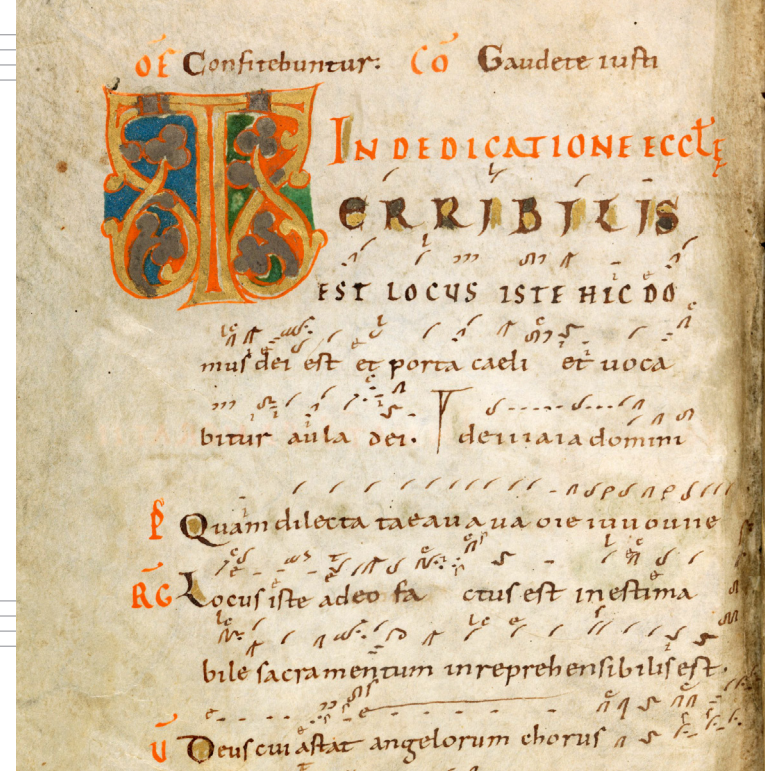 OF Confitebuntur: CO Gaudete iusti
IN DEDICATIONE ECCLĘ
TERRIBILIS
EST LOCUS ISTE HIC DO
mus dei est et porta caeli et uoca
bitur aula dei. domini
PS Quam dilecta
RG Locus iste a deo fa ctus est inestima
bile sacramentum inreprehensibilis est.
V Deus cui astat angelorum chorus